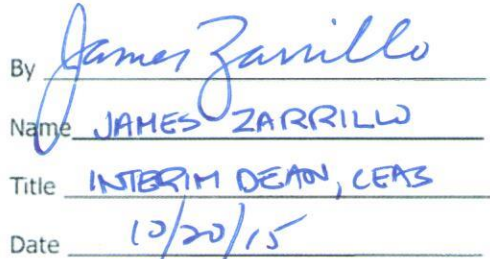 By James Zarrillo
Name JAMES ZARRILLO
Title INTERIM DEAN, CEAS
Date 10/20/15